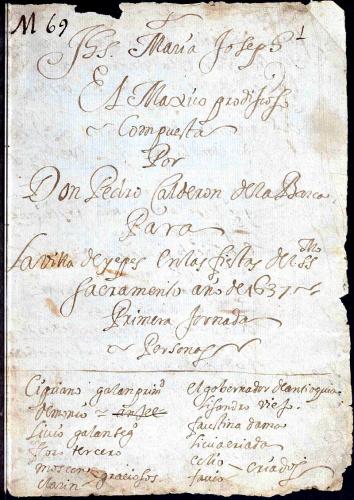 M 69
Jhs. Maria Joseph 1
El Maxico prodijioso
Compuesta
Por
Don Pedro Calderon de la Barca
Para
La villa de yepes en las fiestas del SS.mo
Sacramento año de 1637
Primera Jornada
Personas
Cipriano galan prim.o
Demonio
Livio galan seg.o
tercero
moscon graciosos
clarin
el gobernador de antioquia
lisandro viejo
faustina dama
livia criada
celio criados
favio